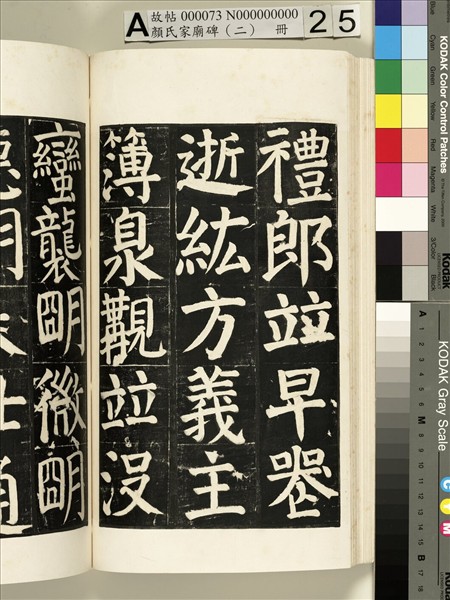 故帖 000073 N000000000
顏氏家廟碑（二） 冊
A
25
禮郎竝早喪
逝紘方義主
簿泉覿竝沒
蠻襲明徽明
KODAK Color Control Patches
Blue
Cyan
Green
Yellow
Red
Magenta
White
3/Color
Black
Kodak
KODAK Gray Scale
A
1
2
3
4
5
6
M
8
9
10
11
12
13
14
15
B
17
18
C
Y
M